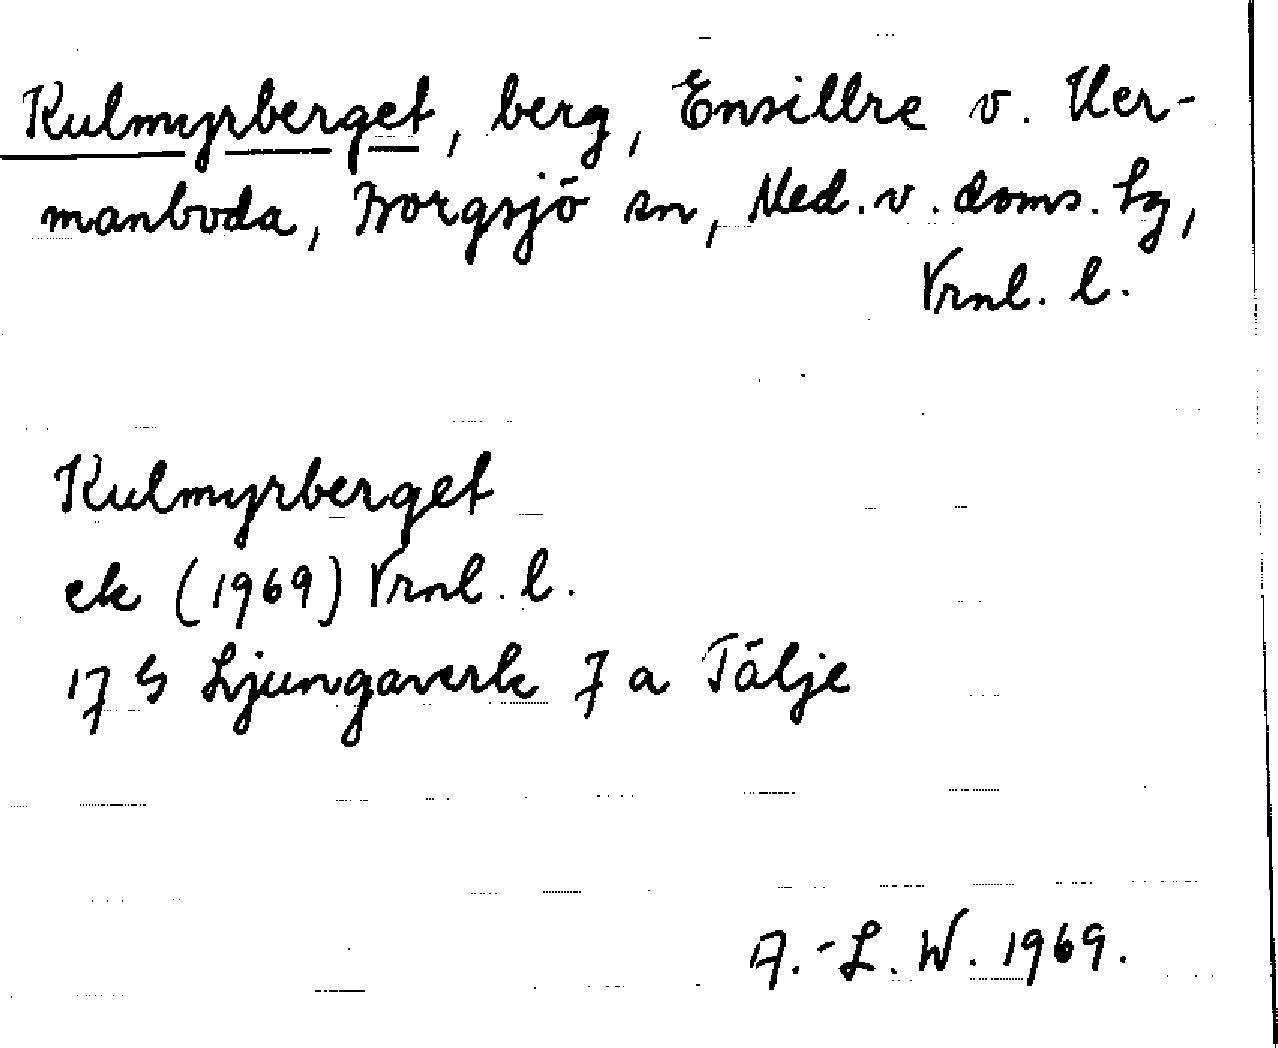 Kulmyrberget, berg, Ensillre v. Her-
manboda, Borgsjö sn, Med. v. doms. tg,
Vrnl. l.
Kulmyrberget
ek (1969) Vrnl. l.
17 G Ljungaverk 7 a Tälje
A.-L. W. 1969.